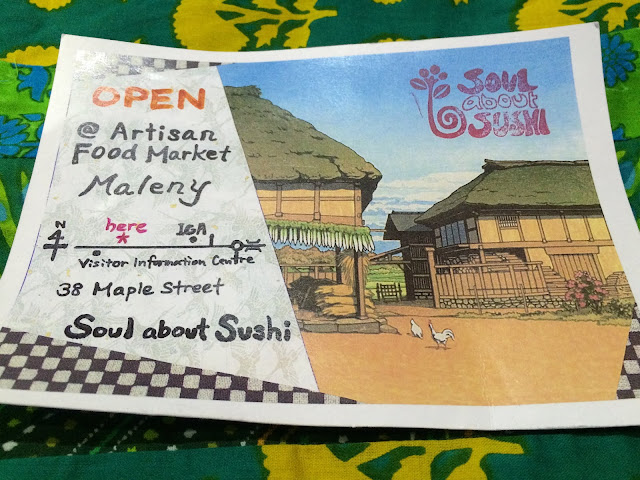 OPEN
@ Artisan
Food Market
Maleny
N
here
IGA
Visitor Information Centre
38 Maple Street
Soul about Sushi
SOUL
about
SUSHI